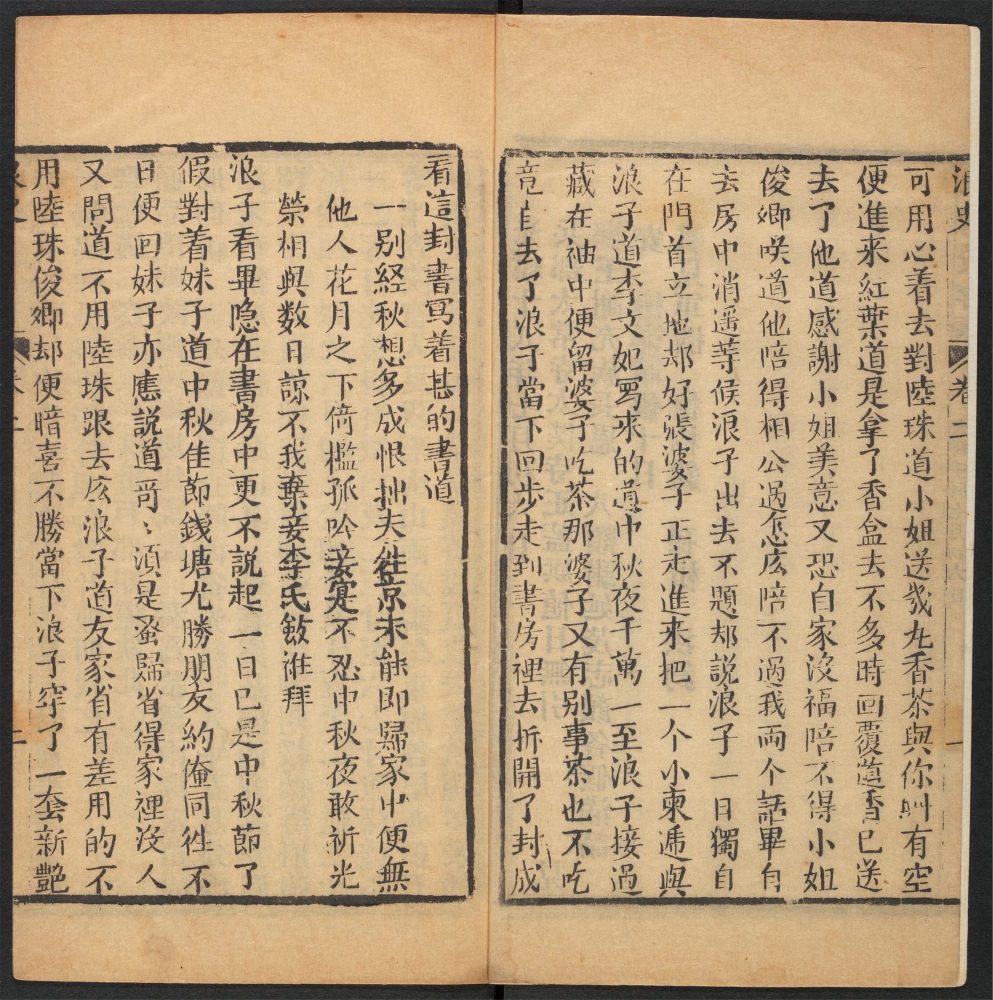 浪史 卷二 一
可用心着去對陸珠道小姐送㡬丸香茶與你呌有空
便進來紅葉道是拿了香盒去不多時回覆道香已送
去了他道感謝小姐美意又恐自家沒福陪不得小姐
俊卿咲道他陪得相公過怎庅陪不過我两个話畢自
去房中消遥等候浪子出去不題却説浪子一日獨自
在門首立地却好張婆子正走進來把一个小柬逓與
浪子道李文妃寫來的道中秋夜千萬一至浪子接過
藏在袖中便留婆子吃茶那婆子又有别事茶也不吃
竟自去了浪子當下回步走到書房裡去拆開了封成
看這封書寫着甚的書道
一别經秋想多成恨拙夫徃京未能即歸家中便無
他人花月之下倚檻孤吟妾寔不忍中秋夜敢祈光
榮相與数日諒不我棄妾李氏斂袵拜
浪子看畢隐在書房中更不説起一日已是中秋節了
假對着妹子道中秋佳節錢塘尤勝朋友約俺同徃不
日便回妹子亦應説道哥〻須是蚤歸省得家裡没人
又問道不用陸珠跟去庅浪子道友家省有差用的不
用陸珠俊卿却便暗喜不勝當下浪子穿了一套新艷
浪史 卷二 二